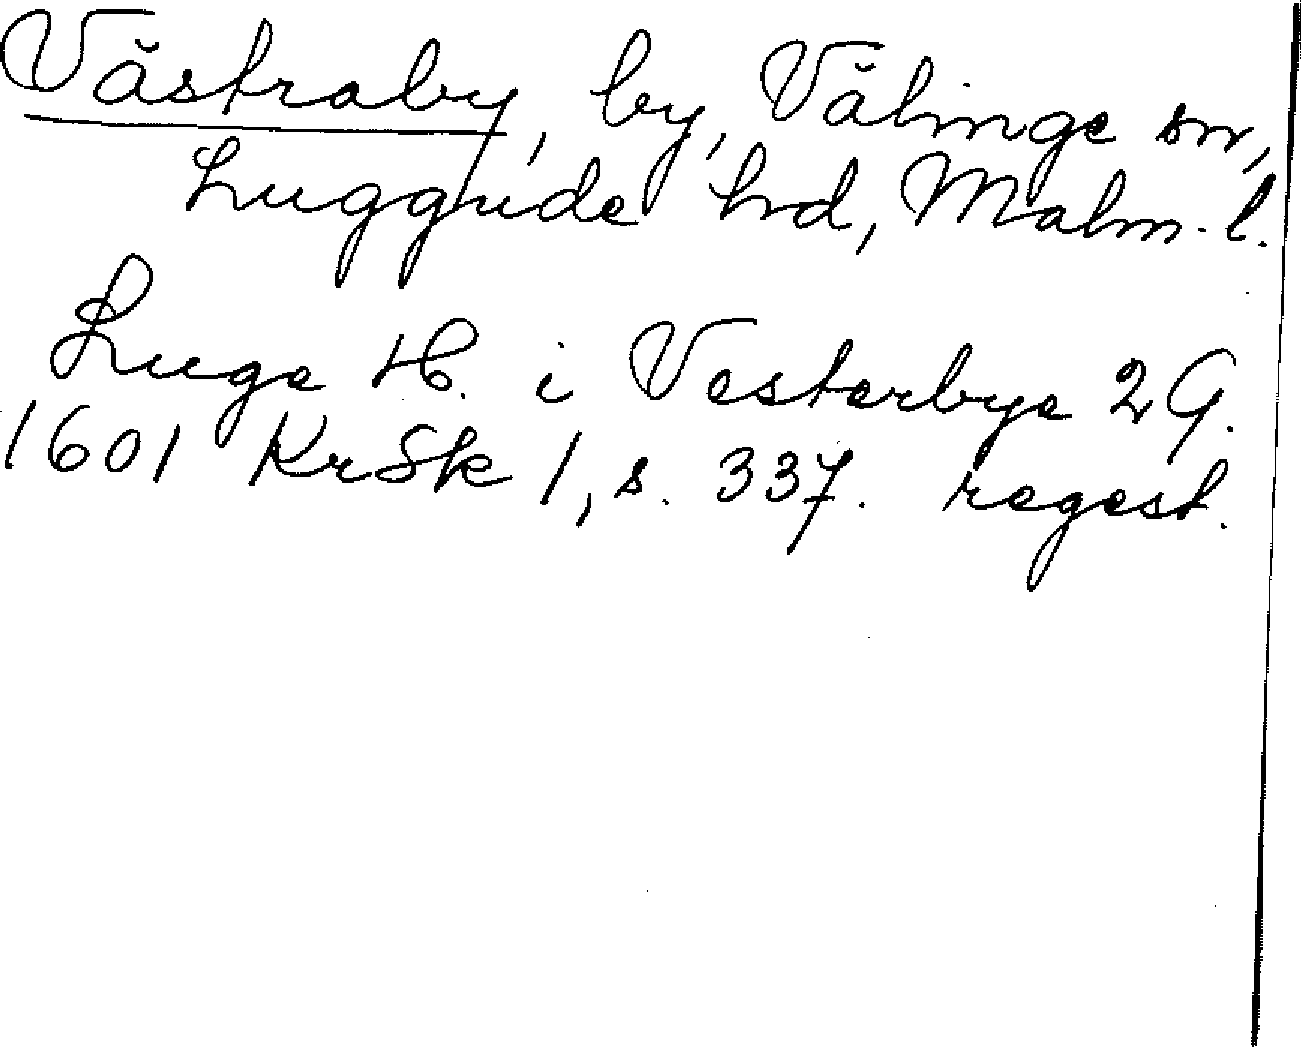 Västraby, by, Välinge sn,
Luggude hrd, Malm. l.
Luge H. i Vesterbye 2 G.
1601 KrSk 1, s. 337. regest.